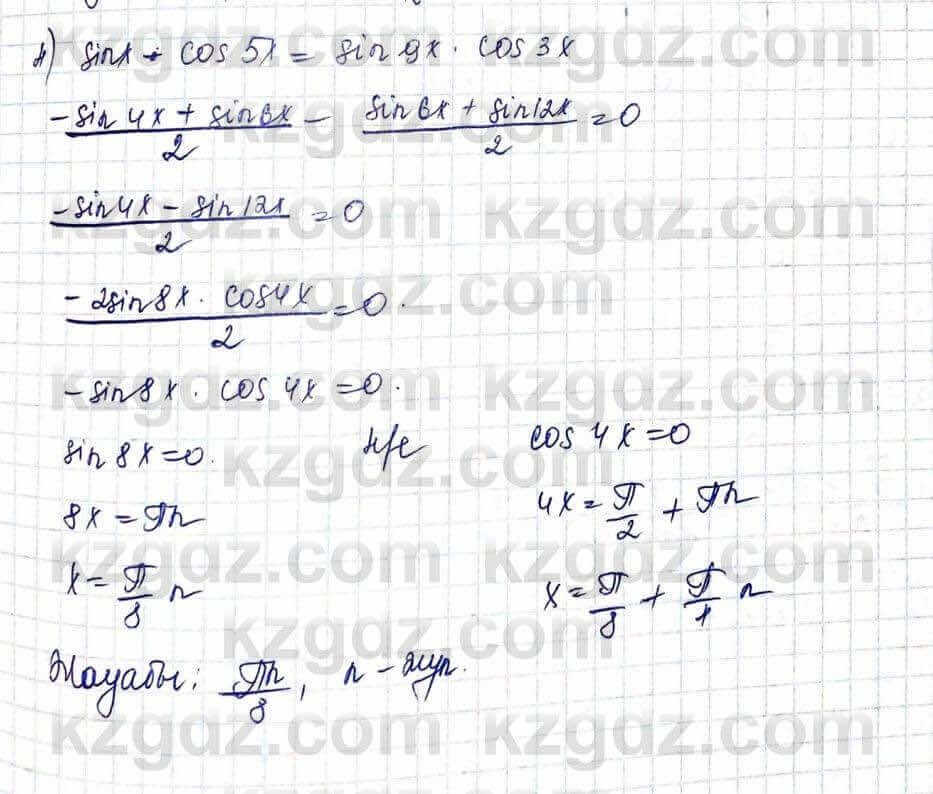 4) sinx · cos 5x = sin 9x · cos 3x
(-sin 4x + sin 6x)/2 - (sin 6x + sin 12x)/2 = 0
(-sin 4x - sin 12x)/2 = 0
(-2sin 8x · cos 4x)/2 = 0.
-sin 8x · cos 4x = 0.
sin 8x = 0. н/е cos 4x = 0
8x = πn 4x = π/2 + πn
x = π/8 n x = π/8 + π/4 n
Жауабы: πn/8, n - жұп.
kzgdz.com